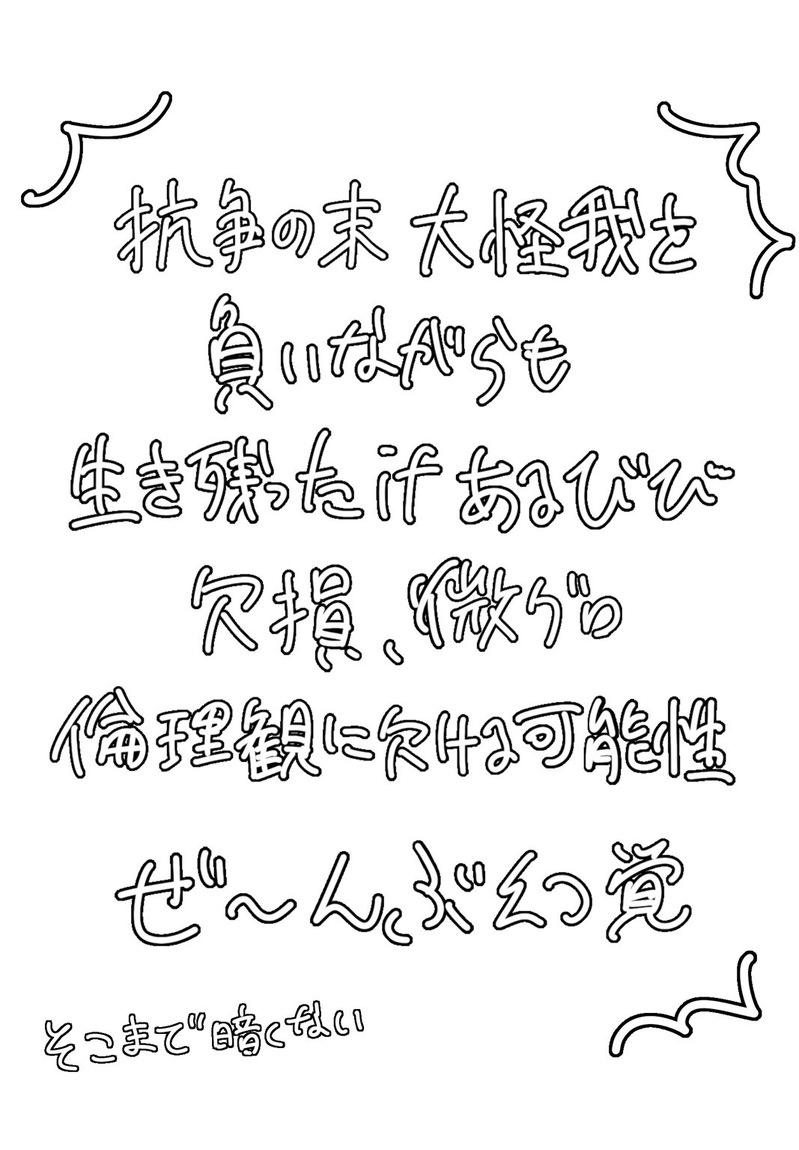 抗争の末 大怪我を
負いながらも
生き残ったif あるびび
欠損、微グロ
倫理観に欠ける可能性
ぜ～んぶ幻覚
そこまで暗くない